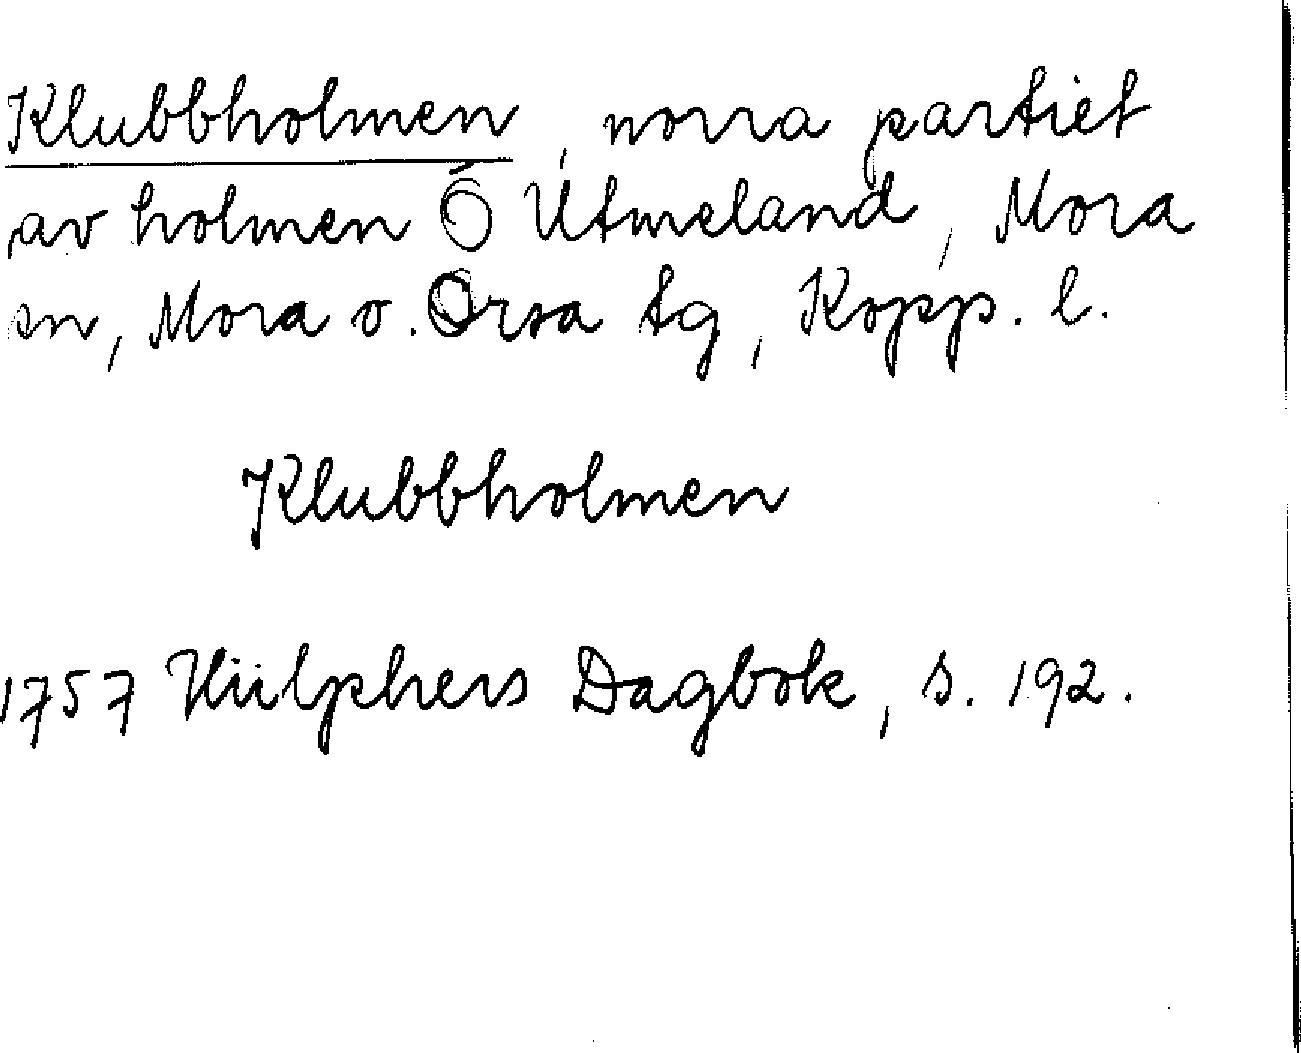 Klubbholmen, norra partiet
av holmen Ö Utmeland, Mora
sn, Mora o. Orsa tg, Kopp. l.
Klubbholmen
1757 Hülphers Dagbok, s. 192.